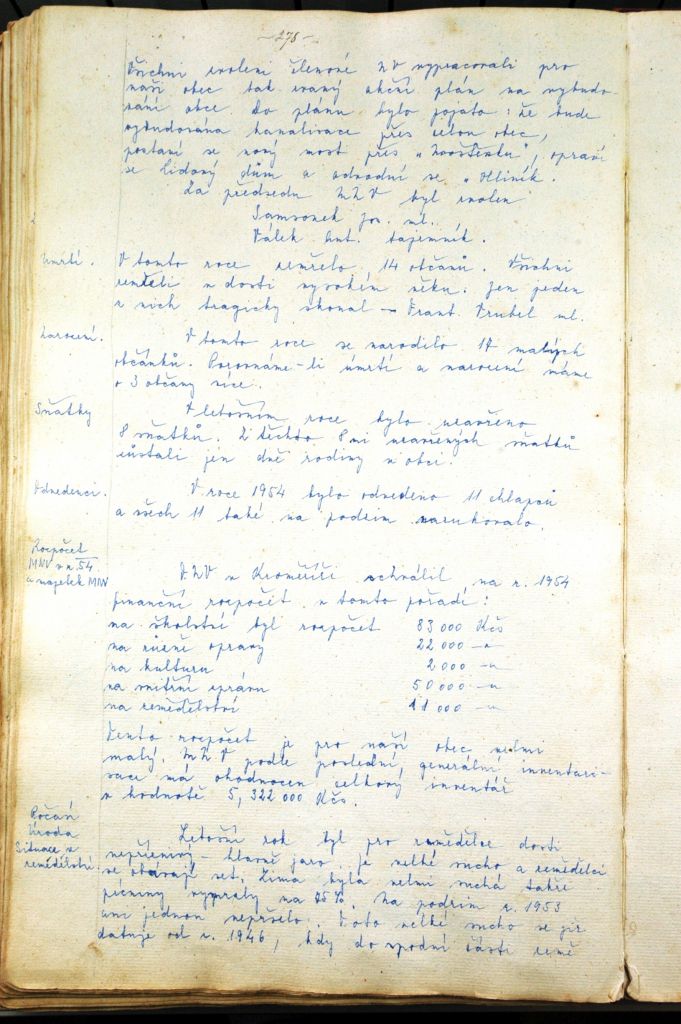 - 275 -
Všichni zvolení členové NV vypracovali pro
naši obec tak zvaný akční plán na vybudo-
vání obce. Do plánu bylo pojato: že bude
vybudována kanalizace přes celou obec,
postaví se nový most přes „ opraví
se Lidový dům a odvodní se „Hliník.
Za předsedu MNV byl zvolen
Samsonek Jos. ml.
Válek Ant. tajemník.
Úmrtí.
V tomto roce zemřelo 14 občanů. Všichni
zemřeli v dosti vysokém věku. Jen jeden
z nich tragicky skonal – Frant. Vrubel ml.
Narození.
V tomto roce se narodilo 17 malých
občánků. Porovnáme-li úmrtí a narození máme
o 3 občany více.
Sňatky
V letošním roce bylo uzavřeno
8 sňatků. Z těchto 8mi uzavřených sňatků
zůstali jen dvě rodiny v obci.
Odvedenci.
V roce 1954 bylo odvedeno 11 chlapců
a všech 11 také na podzim narukovalo.
Rozpočet
MNV v r. 54
a majetek MNV
ONV v Kroměříži schválil na r. 1954
finanční rozpočet v tomto pořadí:
na školství byl rozpočet 83 000 Kčs
na různé opravy 22 000 –„
na kulturu 2 000 –„
na vnitřní správu 50 000 –„
na zemědělství 11 000 –„
Tento rozpočet je pro naši obec velmi
malý. MNV podle poslední generální inventari-
sace má ohodnocen celkový inventář
v hodnotě 5,322 000 Kčs.
Počasí
Úroda
Situace v
zemědělství.
Letošní rok byl pro zemědělce dosti
nepříznivý – hlavně jaro je velké sucho a zemědělci
se obávají set. Zima byla velmi suchá takže
pícniny vymrzly na 75%. Na podzim r. 1953
ani jednou nepršelo. Toto velké sucho se již
datuje od r. 1946, kdy do spodní části země